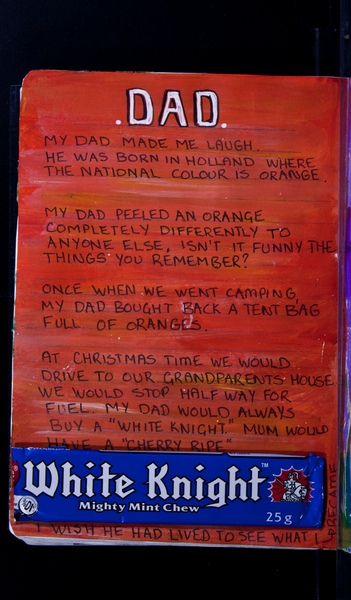 .DAD.
MY DAD MADE ME LAUGH.
HE WAS BORN IN HOLLAND WHERE
THE NATIONAL COLOUR IS ORANGE.
MY DAD PEELED AN ORANGE
COMPLETELY DIFFERENTLY TO
ANYONE ELSE, ISN'T IT FUNNY THE
THINGS YOU REMEMBER?
ONCE WHEN WE WENT CAMPING,
MY DAD BOUGHT BACK A TENT BAG
FULL OF ORANGES.
AT CHRISTMAS TIME WE WOULD
DRIVE TO OUR GRANDPARENTS HOUSE.
WE WOULD STOP HALF WAY FOR
FUEL. MY DAD WOULD ALWAYS
BUY A "WHITE KNIGHT" MUM WOULD
HAVE A "CHERRY RIPE"
White Knight™
Mighty Mint Chew
25g
I WISH HE HAD LIVED TO SEE WHAT I
BECAME